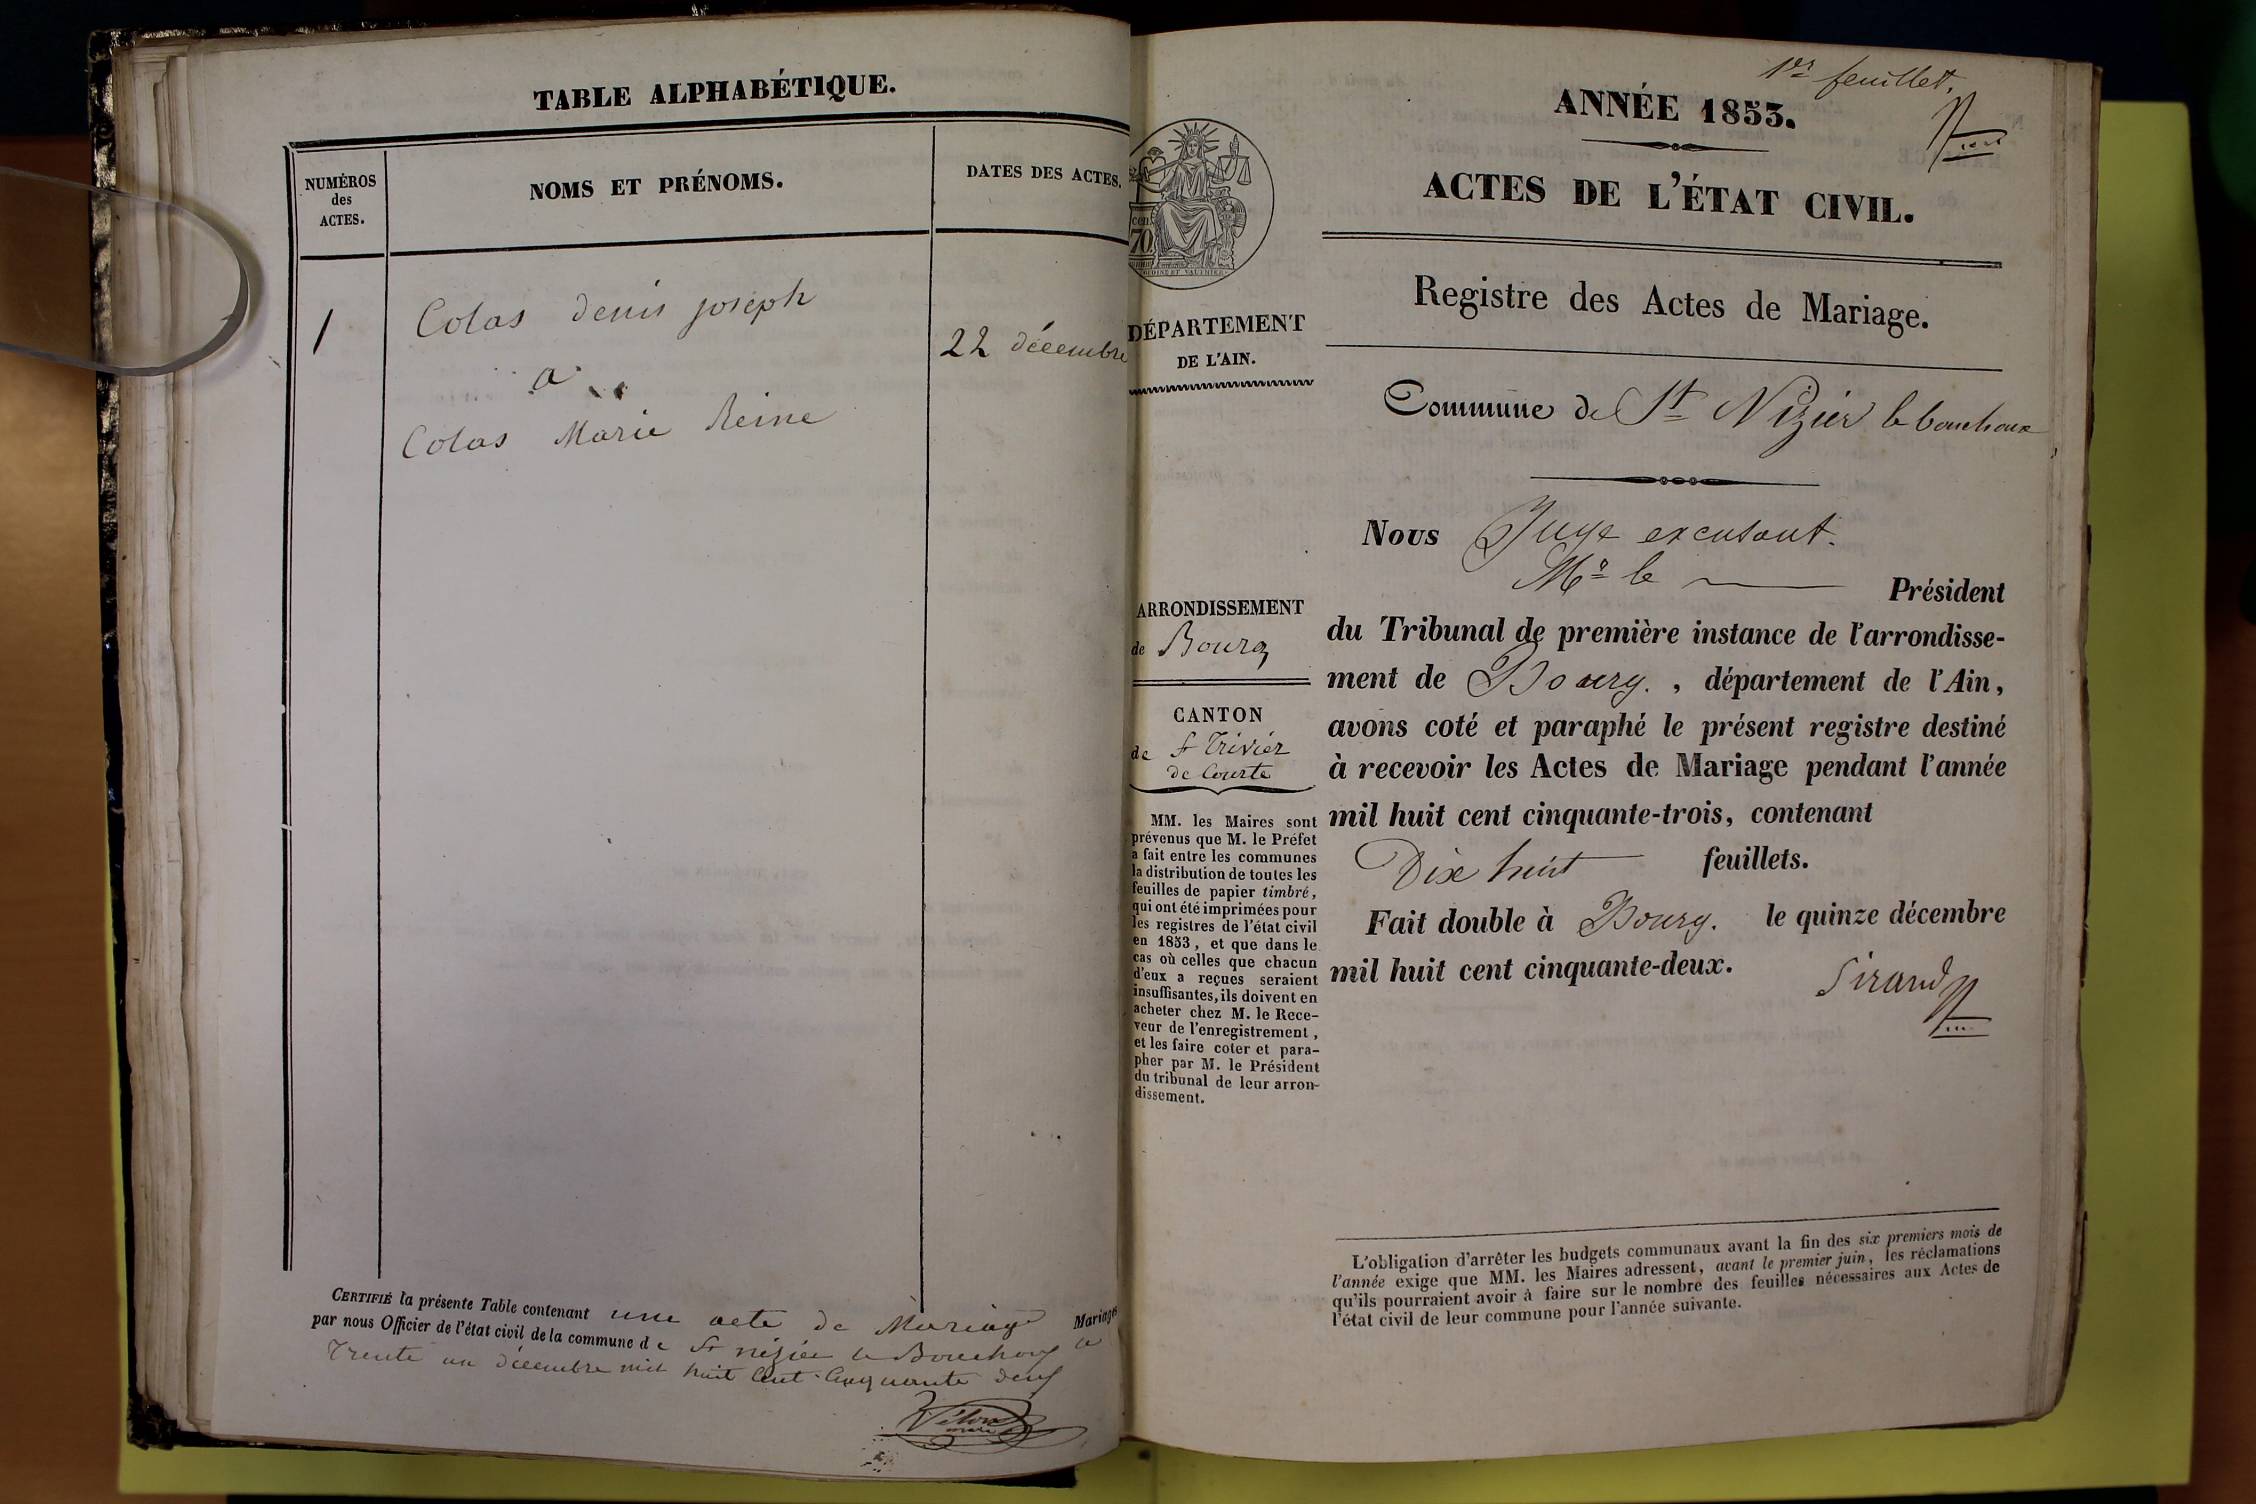 TABLE ALPHABÉTIQUE.
NUMÉROS
des
ACTES.
NOMS ET PRÉNOMS.
DATES DES ACTES.
1
Colas denis joseph
22 décembre
a
Colas Marie Reine
CERTIFIÉ la présente Table contenant une acte de Mariage Mariages
par nous Officier de l'état civil de la commune de St nizier le Bouchoux le
Trente un décembre mil huit Cent Cinquante deux
1er feuillet.
ANNÉE 1853.
ACTES DE L'ÉTAT CIVIL.
cen.
70
Registre des Actes de Mariage.
DÉPARTEMENT
DE L'AIN.
Commune de St Nizier le bouchoux
Nous Juge excusant.
Mr le Président
du Tribunal de première instance de l'arrondisse-
ment de Bourg. , département de l'Ain,
avons coté et paraphé le présent registre destiné
à recevoir les Actes de Mariage pendant l'année
mil huit cent cinquante-trois, contenant
Dix huit feuillets.
Fait double à Bourg. le quinze décembre
mil huit cent cinquante-deux.
Sirand
ARRONDISSEMENT
de Bourg
CANTON
de St Trivier
de Courte
MM. les Maires sont
prévenus que M. le Préfet
a fait entre les communes
la distribution de toutes les
feuilles de papier timbré,
qui ont été imprimées pour
les registres de l'état civil
en 1853, et que dans le
cas où celles que chacun
d'eux a reçues seraient
insuffisantes, ils doivent en
acheter chez M. le Rece-
veur de l'enregistrement,
et les faire coter et para-
pher par M. le Président
du tribunal de leur arron-
dissement.
L'obligation d'arrêter les budgets communaux avant la fin des six premiers mois de
l'année exige que MM. les Maires adressent, avant le premier juin, les réclamations
qu'ils pourraient avoir à faire sur le nombre des feuilles nécessaires aux Actes de
l'état civil de leur commune pour l'année suivante.